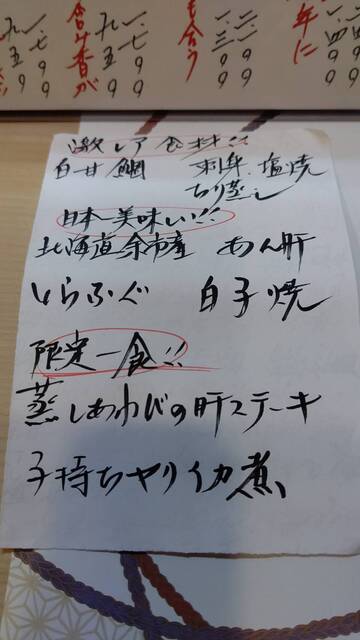 激レア食材!!
白甘鯛 刺身、塩焼
ちり蒸し
日本一美味い!!
北海道余市産 あん肝
とらふぐ 白子焼
限定一食!!
蒸しあわびの肝ステーキ
子持ちヤリイカ煮